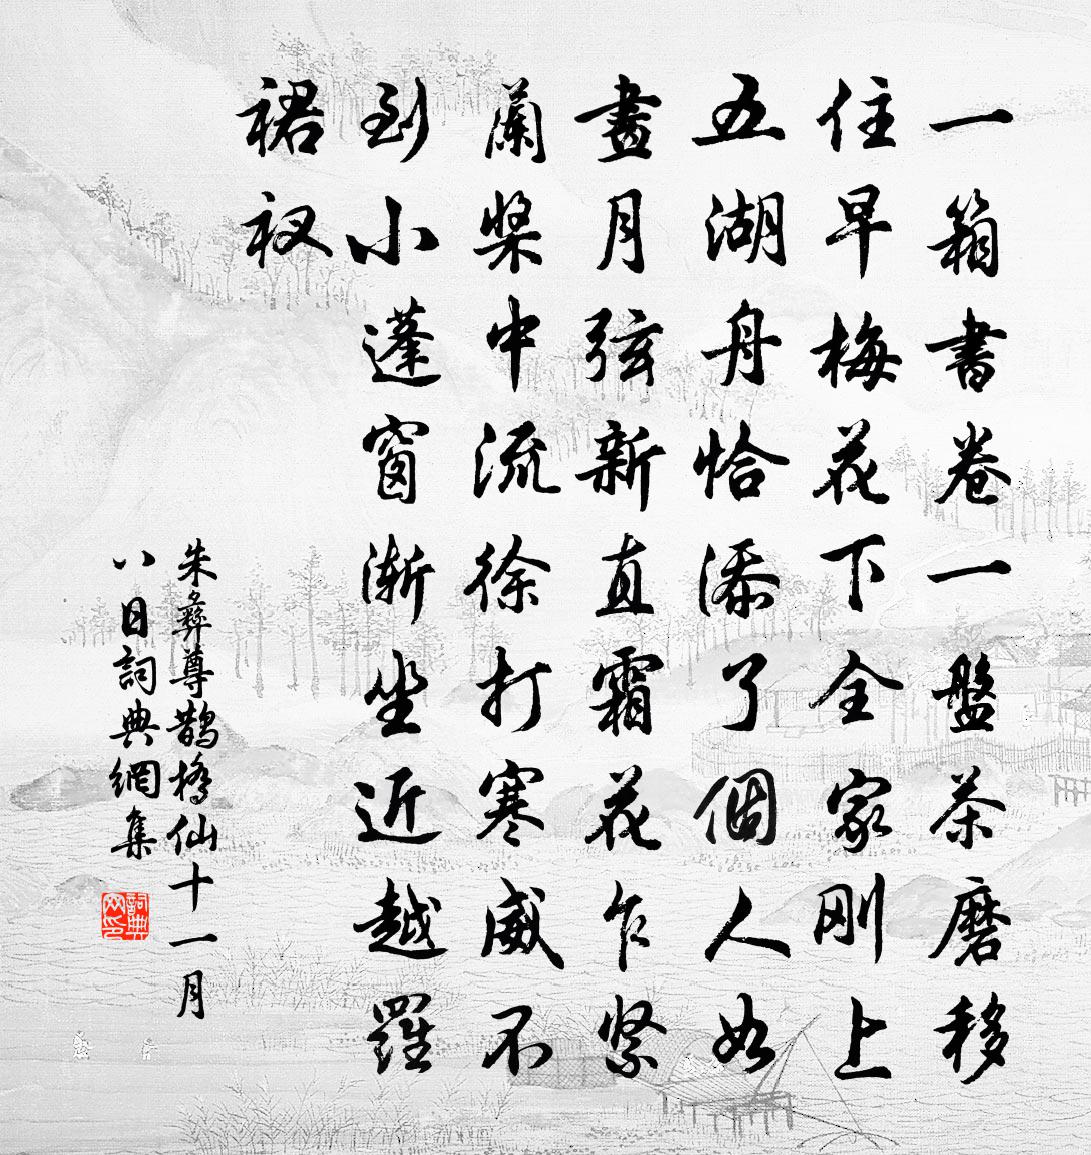 一箱書卷一盤茶磨移
住早梅花下全家剛上
五湖舟恰添了個人如
畫月弦新直霜花乍緊
蘭槳中流徐打寒威不
到小蓬窗漸坐近越羅
裙衩
朱彝尊鵲橋仙十一月
八日詞典網集
詞典
网印